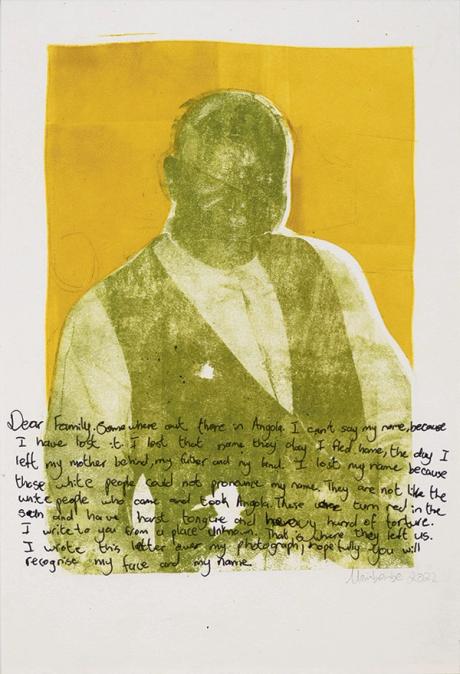 Dear Family. Somewhere out there in Angola. I can't say my name, because
I have lost it. I lost that name they day I fled home, the day I
left my mother behind, my father and my land. I lost my name because
those white people could not pronounce my name. They are not like the
white people who came and took Angola. These turn red in the
and have harst tongue and heavy hand of torture.
I write to you from a place unknown. That's where they left us.
I wrote this letter over my photograph, hopefully you will
recognise my face and my name.
2022